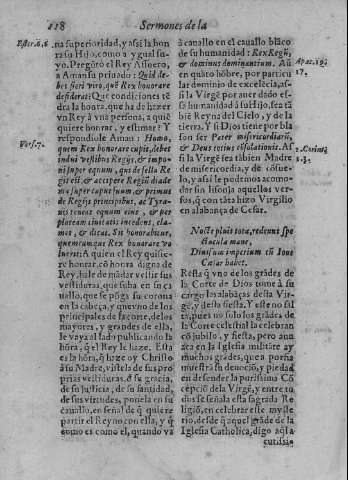 118 Sermones de la
Ester. 6, 6
na superioridad, y assi la hon
ra su Hijo, como a y gual su
yo. Pregũtó el Rey Assuero,
a Aman su priuado: Quid de-
bet fieri viro, quẽ Rex honorare
desiderat? Que condiciones tẽ
dra la honra, que ha de hazer
vn Rey à vna persona, a quiẽ
quiere honrar, y estimar? Y
respondiole Aman: Homo,
Vers. 7.
quem Rex honorare cupit, debet
indui vestibus Regijs, & impo-
ni super equum, qui de sella Re
gis est, & accipere Regiũ diade
ma super caput suum, & primus
de Regijs principibus, ac Tyra-
nis teneat equum eius, & per
plateam ciuitatis incedens, cla-
met, & dicat. Sic honorabitur,
quemcumque Rex honorare vo
luerit: A quien el Rey quisie-
re honrar, cõ honra digna de
Rey, hale de mãdar vestir sus
vestiduras, que suba en su ca
uallo, que se põga su corona
en la cabeça, y que vno de los
principales de su corte, de los
mayores, y grandes de ella,
le vaya al lado publicando la
hõra, q̃ el Rey le haze. Esta
es la hõra, q̃ haze oy Christo
à su Madre, vistela de sus pro
prias vestiduras, d su gracia,
de su justicia, de su santidad,
de sus virtudes, ponela en su
cauallo, en señal de q̃ quiere
partir el Reyno con ella, y q̃
como es como el, quando va
à cauallo en el cauallo blãco
de su humanidad: Rex Regũ,
& dominus dominantium. Assi
Apoc. 19.
17.
en quãto hõbre, por particu
lar dominio de excelẽcia, assi
la Virgẽ por auer dado essa
humanidad a su Hijo, sea tã
biẽ Reyna del Cielo, y de la
tierra. Y si Dios tiene por bla
son ser Pater misericordiarũ,
& Deus totius cõsolationis. As
2. Corint.
1. 3.
si la Virgẽ sea tãbien Madre
de misericordia, y de cõsue-
lo, y assi le podremos acomo-
dar sin lisonja aquellos ver-
sos, q̃ con tãta hizo Virgilio
en alabança de Cesar.
Nocte pluit tota, redeunt spe
ctacula mane,
Diuisum imperium cũ Ioue
Cæsar habet.
Resta q̃ vno de los grãdes de
la Corte de Dios tome à su
cargo las alabãças desta Vir
gẽ, y desta fiesta. Y esse no so
lo, pues no solo los grãdes de
la Corte celestial la celebran
cõ jubilo, y fiesta, pero aun
aca en la Iglesia militãte ay
muchos grãdes, que a porfia
muestrã su deuociõ, y piedad
en defender la purissima Cõ
cepciõ de la Virgẽ, y entre to
dos se señala esta sagrada Re
ligiõ, en celebrar este myste
rio, desde q̃ aquel grãde de la
Iglesia Catholica, digo aq̃l a
cutissi-